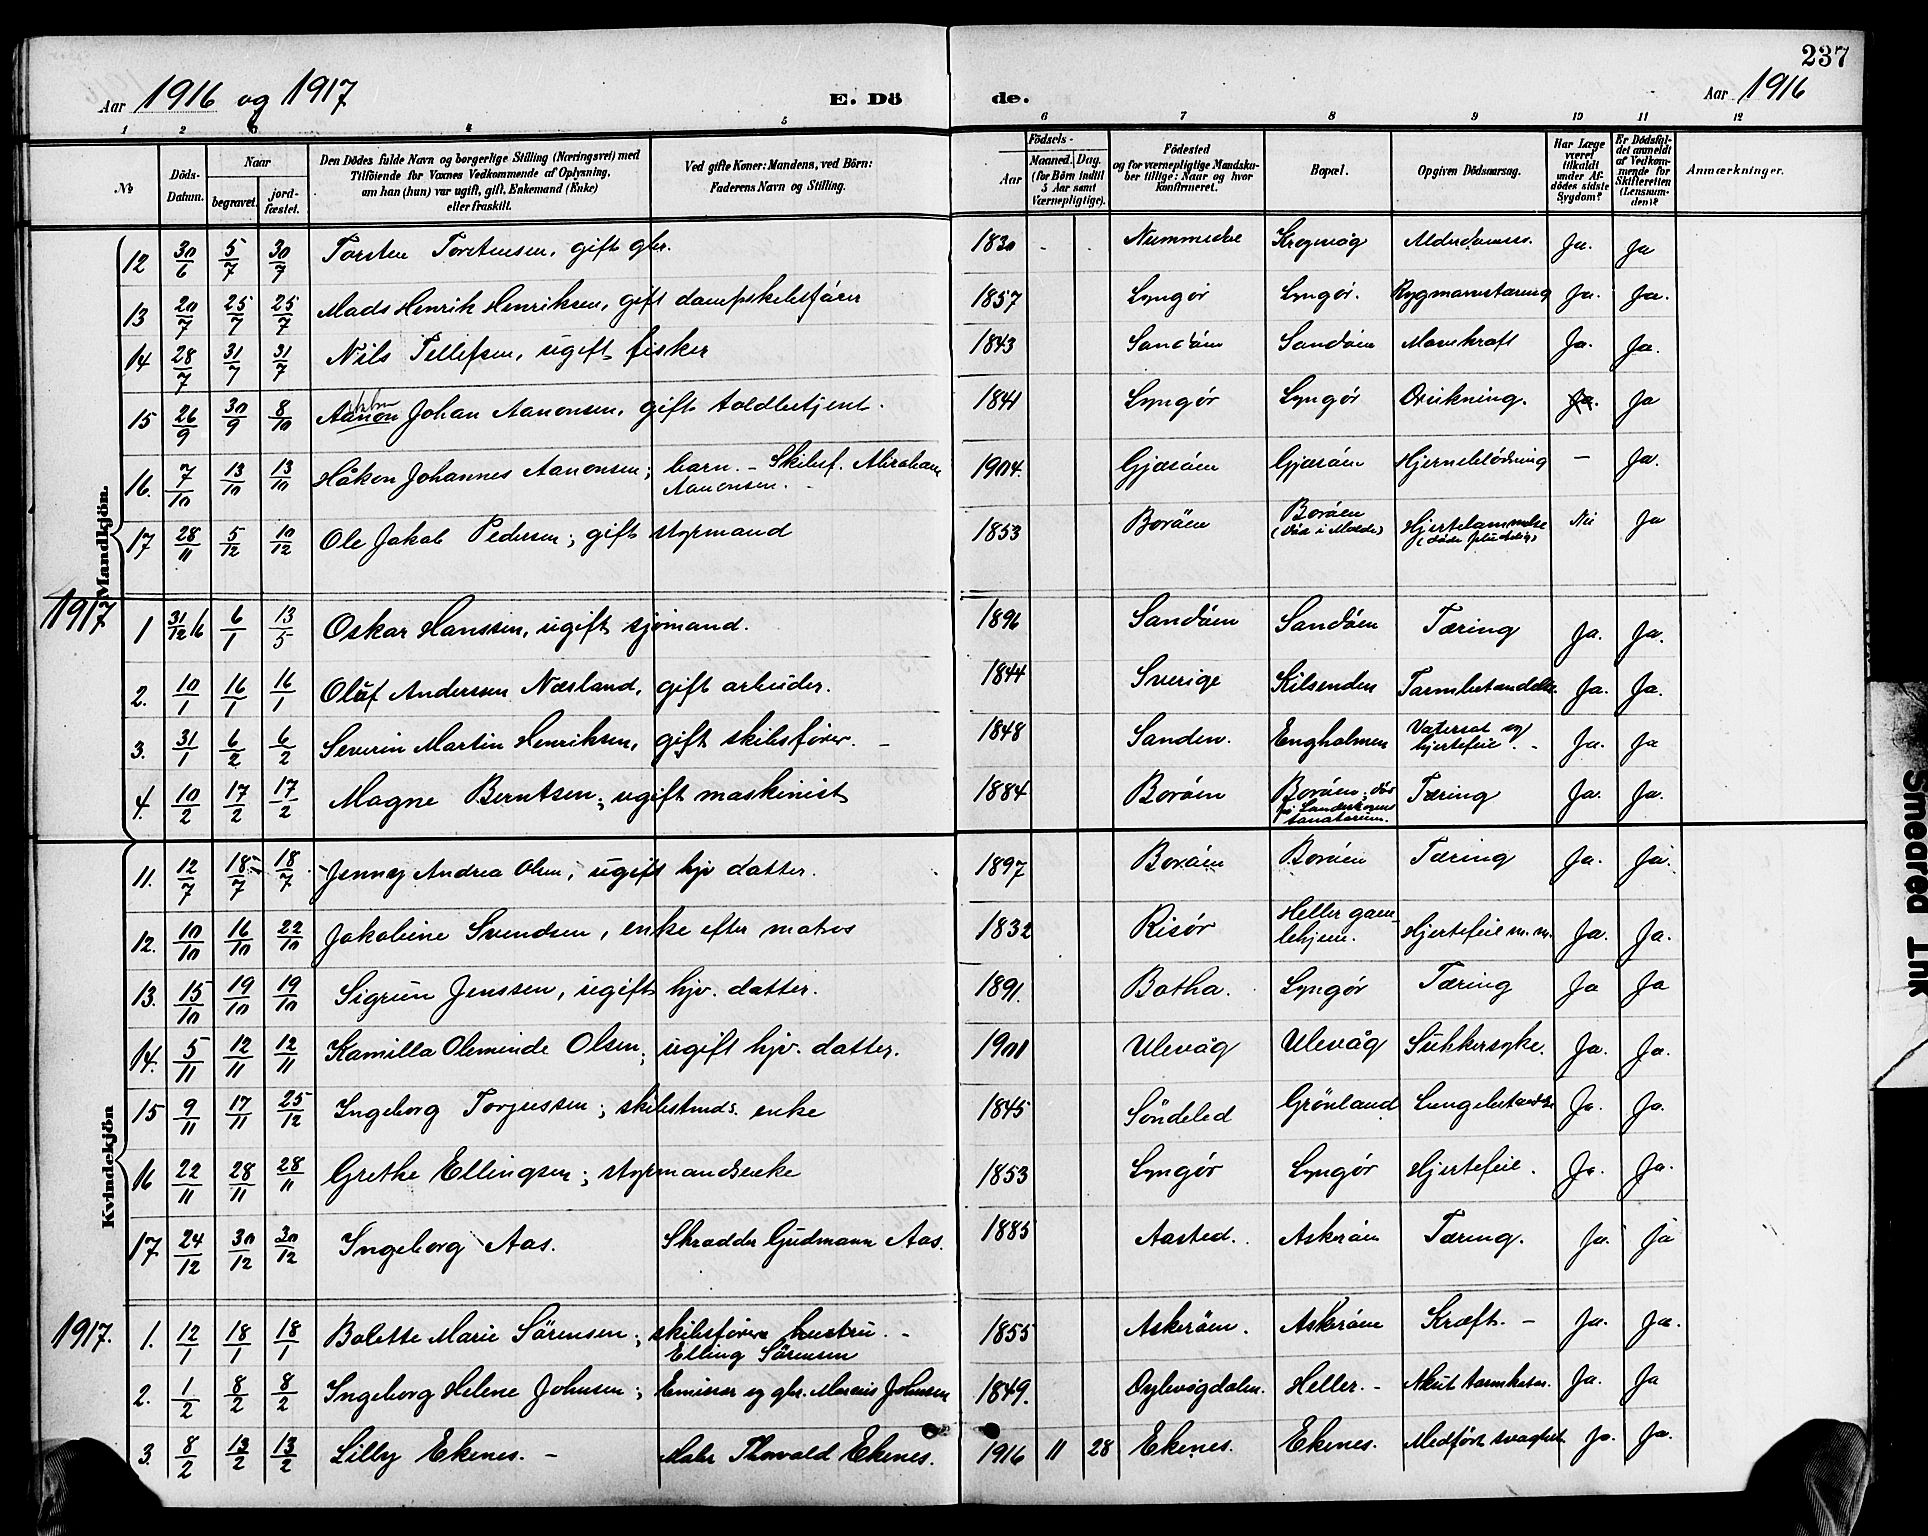 237
Aar 1916 og 1917 E. Dö de. Aar 1916
1 2 3 4 5 6 7 8 9 10 11 12
№ Döds-Datum. Naar begravet. jordfæstet. Den Dödes fulde Navn og borgerlige Stilling (Næringsvei) med Tilföiende for Voxnes Vedkommende af Oplysning, om han (hun) var ugift, gift, Enkemand (Enke) eller fraskilt. Ved gifte Koner: Mandens, ved Börn: Faderens Navn og Stilling. Födsels- Aar Maaned. Dag. (for Börn indtil 5 Aar samt Værnepligtige). Födested og for værnepligtige Mandskaber tillige: Naar og hvor konfirmeret. Bopæl. Opgiven Dödsaarsag. Har Læge været tilkaldt under Afdödes sidste Sygdom? Er Dödsfaldet anmeldt af Vedkommende for Skifteretten (Lensmanden)? Anmærkninger.
Mandkjön.
12 30/6 5/7 30/7 Torsten Torstensen, gift gbr. 1830 - . Nummedal Krogvåg Ja. Ja
13 20/7 25/7 25/7 Mads Henrik Henriksen, gift dampskibsfører 1857 Lyngør Lyngør. Rygmarvstæring Ja. Ja.
14 28/7 31/7 31/7 Nils Tellefsen, ugift fisker 1843 Sandøen Sandøen Mavekræft Ja. Ja.
15 26/9 30/9 8/10 Aanon Johan Aanonsen, gift toldbetjent. 1841 Lyngør Lyngør Drukning. Ja. Ja
16. 7/10 13/10 13/10 Håkon Johannes Aanonsen; barn. - Skibsf. Abraham Aanonsen. - 1904. Gjæsøen Gjæsøen Hjerneblödning — Ja.
17 28/11 5/12 10/12 Ole Jakob Pedersen; gift styrmand 1853 Borøen Borøen (död i Molde) Hjertelammelse (døde pludselig) Nei Ja
1917
1 31/12 16 6/1 13/5 Oskar Hanssen, ugift sjømand. 1896 Sandøen Sandøen Tæring Ja. Ja.
2. 10/1 16/1 16/1 Oluf Andersen Næsland, gift arbeider. 1844 Sverige Kilsenden Tarmbetændelse Ja. Ja.
3. 31/1 6/2 6/2 Severin Martin Henriksen, gift skibsfører. - 1848 Sanden. Engholmen Vatersot og hjertefeil. - Ja. Ja
4. 10/2 17/2 17/2 Magne Berntsen; ugift maskinist 1884 Borøen Borøen; död på Landeskogens sanatorium. Tæring Ja. Ja.
Kvindekjön
11. 12/7 18/7 18/7 Jenny Andrea Olsen, ugift hjv datter. 1897 Borøen Borøen Tæring Ja. Ja.
12. 10/10 16/10 22/10 Jakobine Svendsen, enke efter matros 1832 Risør Heller gamlehjem. Hjertefeil m.m. Ja. Ja.
13. 15/10 19/10 19/10 Sigrun Jenssen, ugift hjv. datter. 1891. Botha. Lyngør Tæring Ja Ja
14. 5/11 12/11 12/11 Kamilla Oleminde Olsen; ugift hjv. datter. 1901 Ulevåg Ulevåg Sukkersyke. Ja. Ja.
15 9/11 17/11 25/12 Ingeborg Torjussen; skibstmds. enke 1845 Söndeled Grönland Lungebetændelse Ja. Ja.
16 22/11 28/11 28/11 Grethe Ellingsen; styrmandsenke 1853 Lyngør Lyngør Hjertefeil. Ja. Ja.
17 24/12 30/12 30/12 Ingeborg Aas. Skrædder Gudmann Aas. 1885 Aasted. Askerøen Tæring. Ja. Ja
1917.
1. 12/1 18/1 18/1 Bolette Marie Sörensen; skibsførers hustru. - Elling Sörensen 1855 Askerøen. Askerøen Kræft. - Ja. Ja.
2. 1/2 8/2 8/2 Ingeborg Helene Johnsen; Emissær og gbr. Marcus Johnsen 1849. Heller. - Akut tarmkatar. Ja. Ja
3. 8/2 13/2 13/2 Lilly Ekenes. - Maler Thorvald Ekenes. 1916 11 28 Ekenes. Ekenes. Medført svaghet Ja. Ja.
Smeared Ink